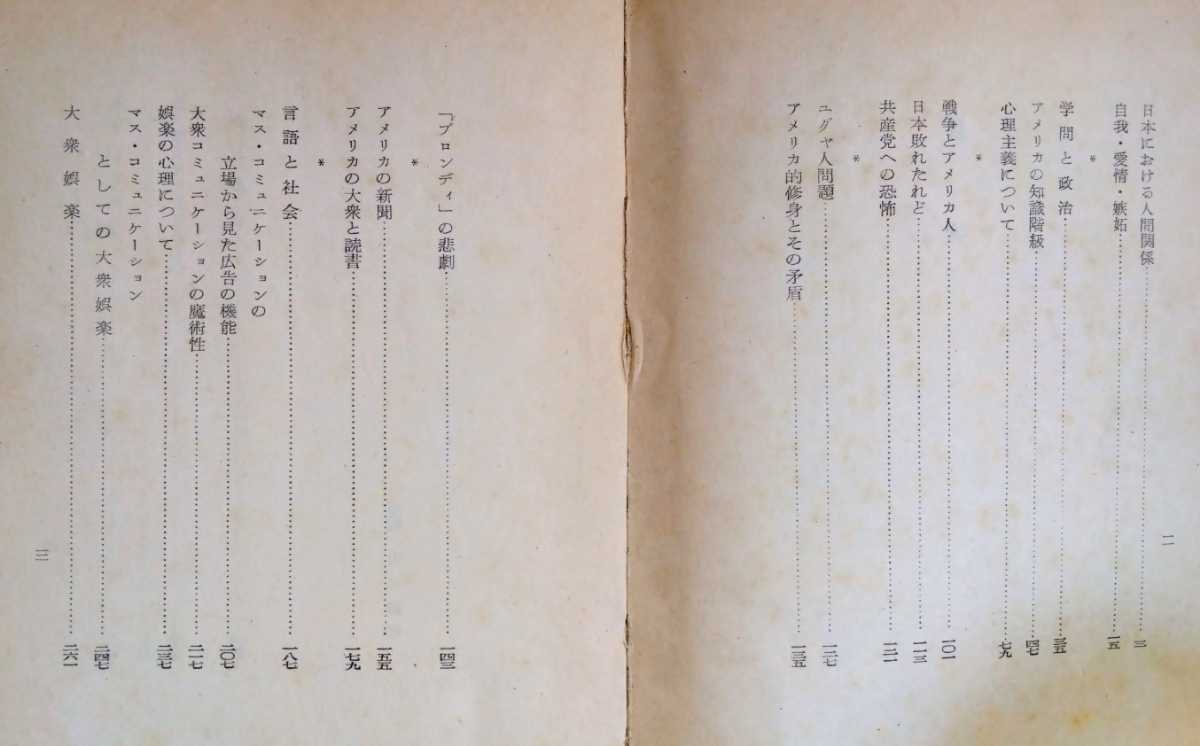 日本における人間関係……三
自我・愛情・嫉妬……一五
*
学問と政治……三五
アメリカの知識階級……四七
心理主義について……七九
*
戦争とアメリカ人……一〇一
日本敗れたれど……一一三
共産党への恐怖……一二一
*
ユダヤ人問題……一二七
アメリカ的修身とその矛盾……一三五
二
「ブロンディ」の悲劇……一四三
*
アメリカの新聞……一五五
アメリカの大衆と読書……一七九
*
言語と社会……一八七
マス・コミュニケーションの
立場から見た広告の機能……二〇七
大衆コミュニケーションの魔術性……二一七
娯楽の心理について……二三七
マス・コミュニケーション
としての大衆娯楽……二四七
大衆娯楽……二六一
三